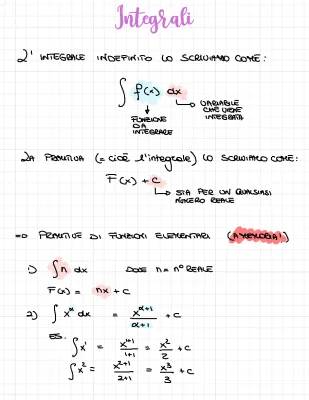 Integrali
L' INTEGRALE INDEFINITO LO SCRIVIAMO COME:
∫ f(x) dx
FUNZIONE DA INTEGRARE
VARIABILE CHE VIENE INTEGRATA
LA PRIMITIVA (= cioè l'integrale) LO SCRIVIAMO COME:
F(x) + c
STA PER UN QUALSIASI NUMERO REALE
=> PRIMITIVE DI FUNZIONI ELEMENTARI (A MEMORIA!)
1) ∫ n dx DOVE n = n° REALE
F(x) = nx + c
2) ∫ x^α dx = x^(α+1)/(α+1) + c
ES.
∫ x¹ = x^(1+1)/(1+1) = x²/2 + c
∫ x² = x^(2+1)/(2+1) = x³/3 + c